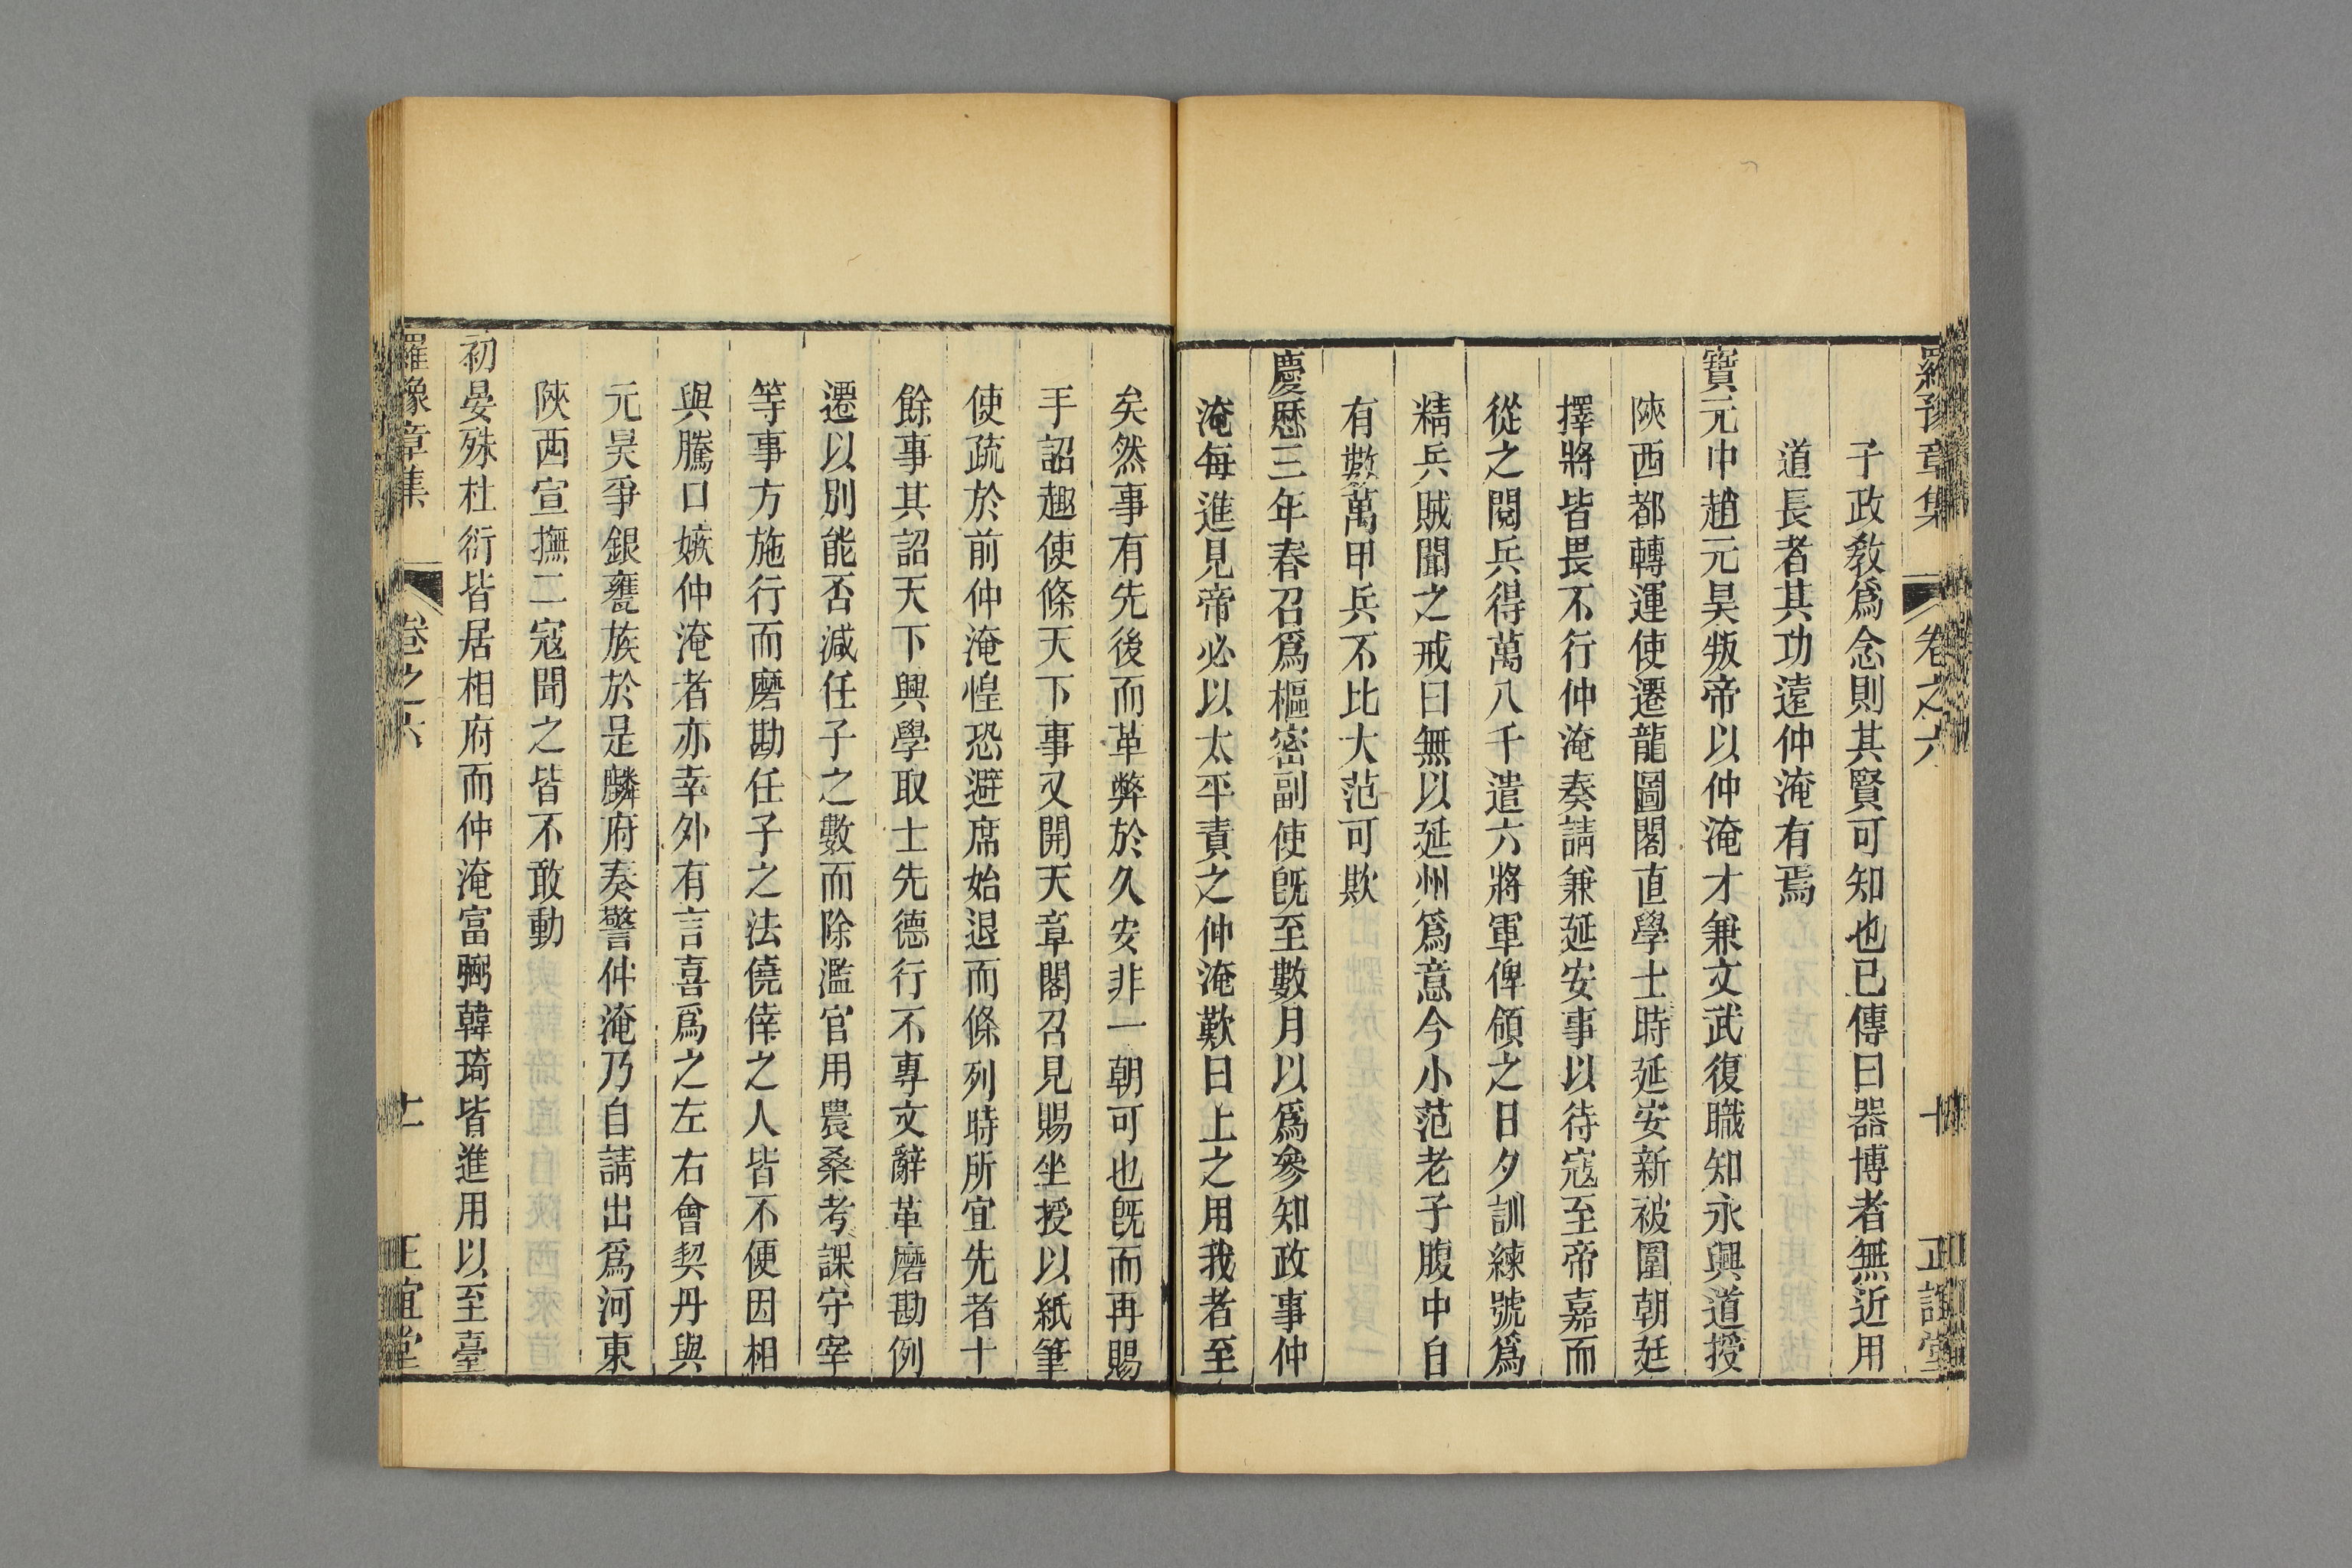 羅豫章集 卷之六 十 正誼堂
子政教爲念則其賢可知也已傳曰器博者無近用
道長者其功遠仲淹有焉
寶元中趙元昊叛帝以仲淹才兼文武復職知永興道授
陝西都轉運使遷龍圖閣直學士時延安新被圍朝廷
擇將皆畏不行仲淹奏請兼延安事以待寇至帝嘉而
從之閱兵得萬八千遣六將軍俾領之日夕訓練號爲
精兵賊聞之戒曰無以延州爲意今小范老子腹中自
有數萬甲兵不比大范可欺
慶曆三年春召爲樞密副使旣至數月以爲參知政事仲
淹每進見帝必以太平責之仲淹歎曰上之用我者至
矣然事有先後而革弊於久安非一朝可也旣而再賜
手詔趣使條天下事又開天章閣召見賜坐授以紙筆
使疏於前仲淹惶恐避席始退而條列時所宜先者十
餘事其詔天下興學取士先德行不專文辭革磨勘例
遷以別能否減任子之數而除濫官用農桑考課守宰
等事方施行而磨勘任子之法僥倖之人皆不便因相
與騰口嫉仲淹者亦幸外有言喜爲之左右會契丹與
元昊爭銀甕族於是麟府奏警仲淹乃自請出爲河東
陝西宣撫二寇聞之皆不敢動
初晏殊杜衍皆居相府而仲淹富弼韓琦皆進用以至臺
羅豫章集 卷之六 十一 正誼堂